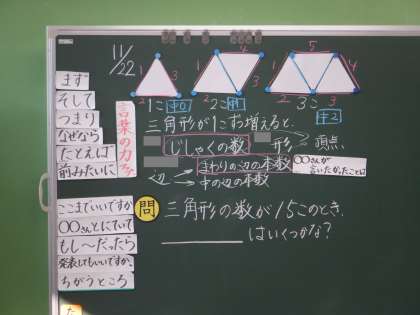 11/22
まず
そして
つまり
なぜなら
たとえば
前みたいに
言葉の力
ここまでいいですか
〇〇さんとにていて
もし〜だったら
発表してもいいですか。
ちがうところ
1 3 2
1こ 中0
4 1 3 2
2こ 中1
5 1 4 2 3
3こ 中2
三角形が1こずつ増えると、
じしゃくの数 形 頂点
まわりの辺の本数
辺 中の辺の本数
〇〇さんが
言いたかったことは
問 三角形の数が15このとき、
はいくつかな？
た